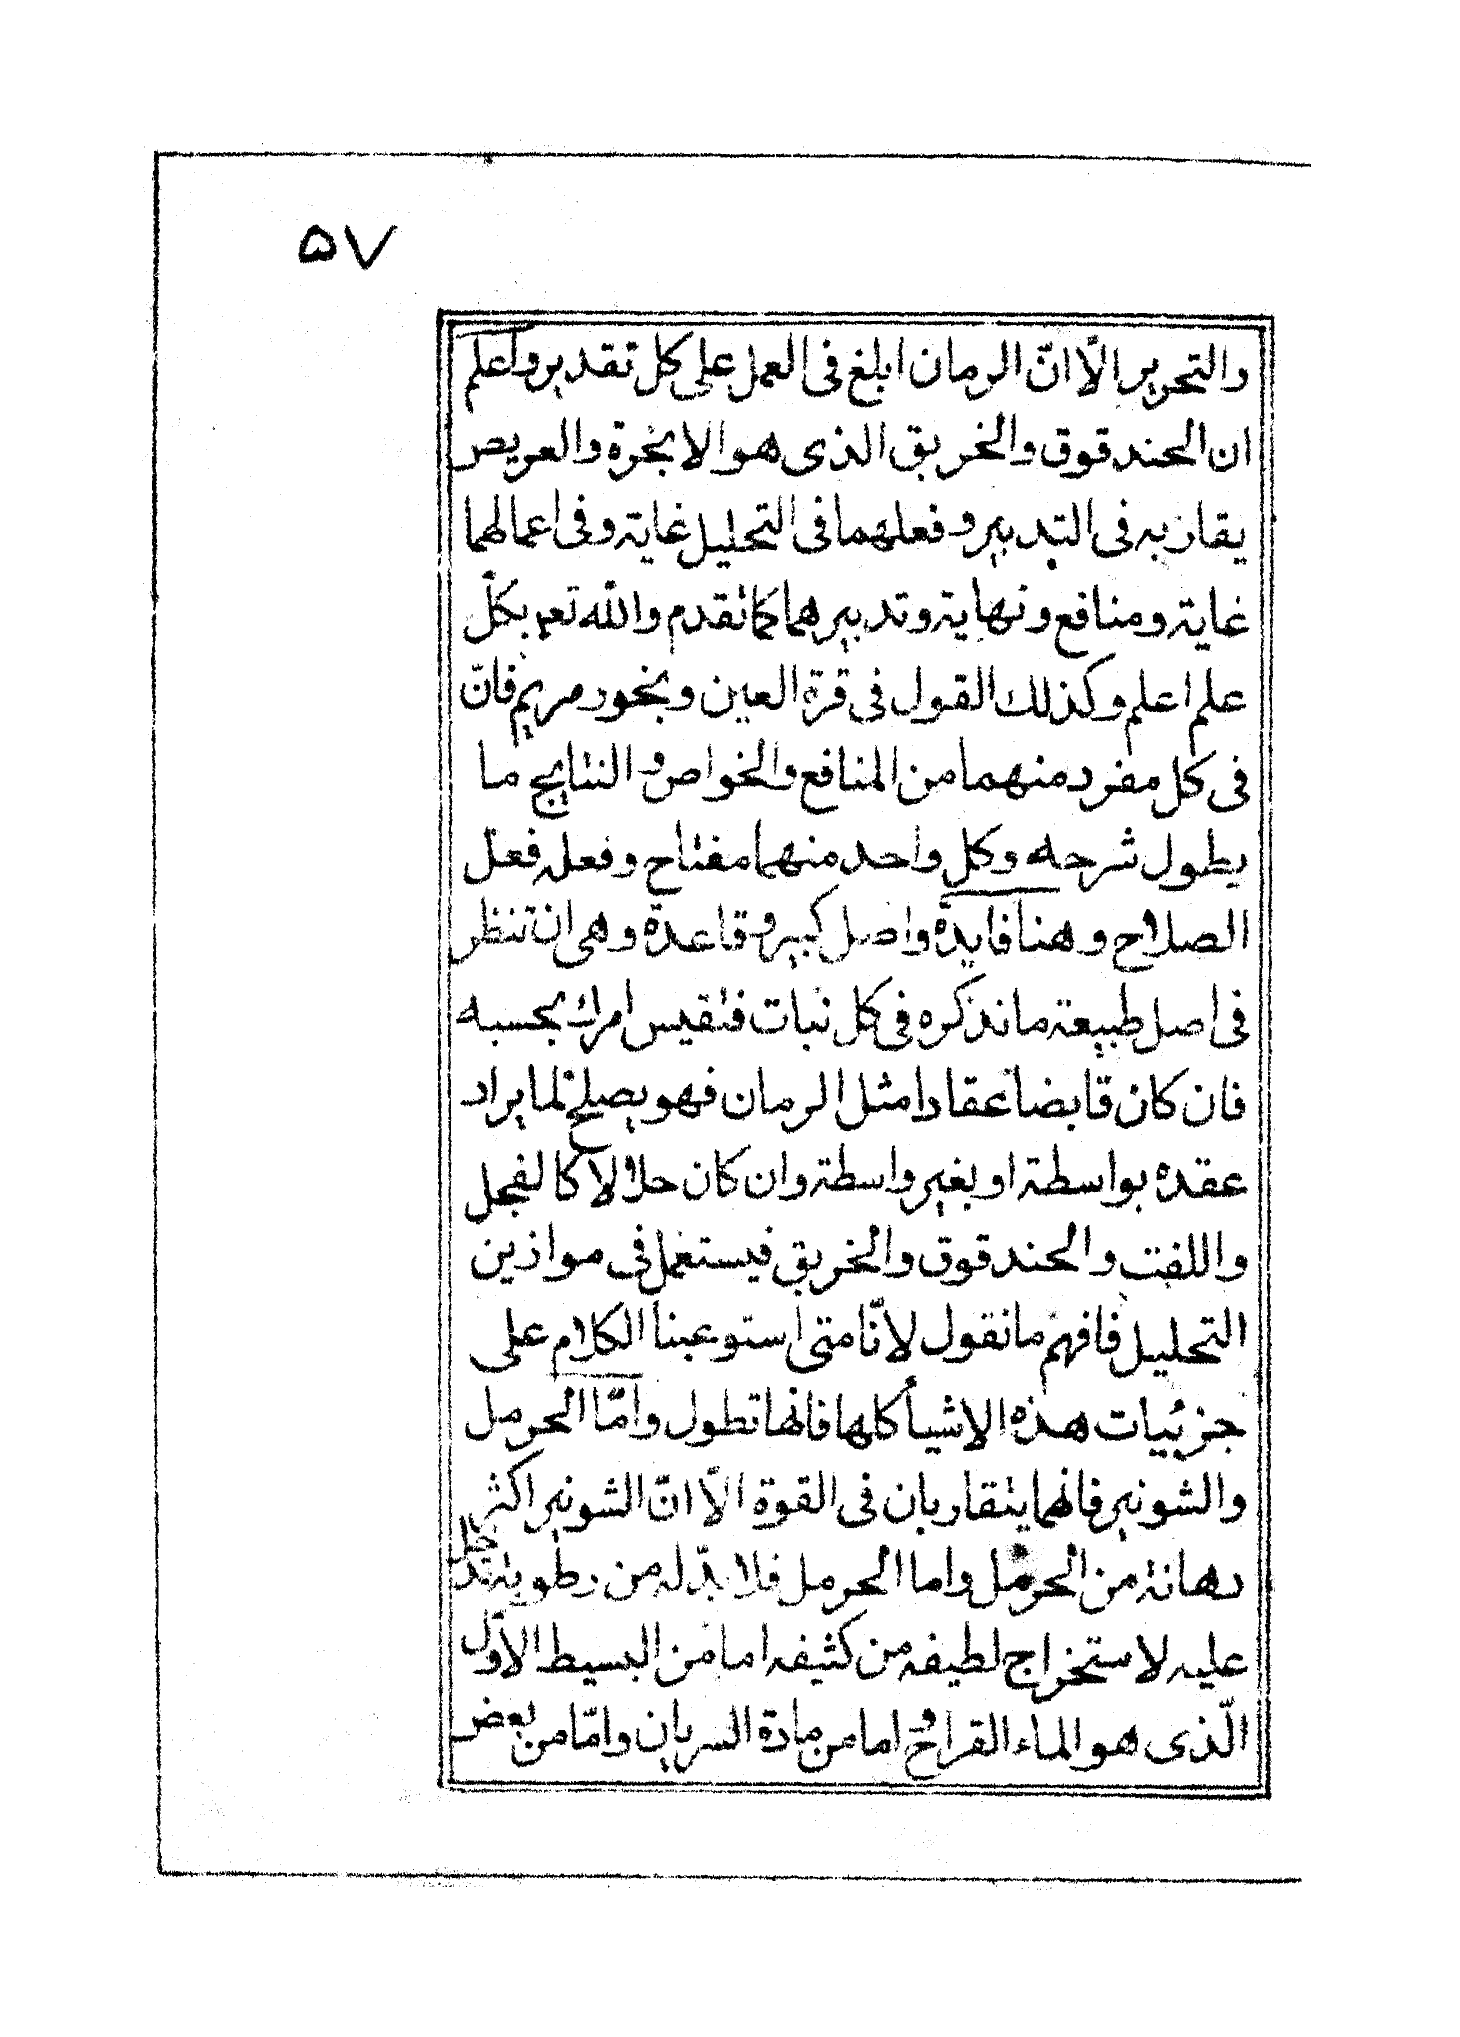 ۵۷
والتحرير الّا انّ الرمان ابلغ فى العمل على كل تقدير واعلم
ان الحندقوق والخريق الذى هو الابخرة والعريض
يقاربه فى التدبير وفعلهما فى التحليل غاية وفى اعمالهما
غاية ومنافع ونهاية وتدبيرهما كما تقدم والله تعم بكلّ
علم اعلم وكذلك القول فى قرة العين وبخور مريم فانّ
فى كل مفرد منهما من المنافع والخواص والنتايج ما
يطول شرحه وكل واحد منهما مفتاح وفعله فعل
الصلاح وهنا فايدة واصل كبير وقاعدة وهى ان تنظر
فى اصل طبيعة ما نذكره فى كل نبات فتقيس امرك بحسبه
فان كان قابضا عقادا مثل الرمان فهو يصلح لما يراد
عقده بواسطة او بغير واسطة وان كان حلالا كالفجل
واللفت والحندقوق والخريق فيستعمل فى موازين
التحليل فافهم ما نقول لانّا متى استوعبنا الكلام على
جزئيات هذه الاشيأ كلها فانها تطول وامّا الحرمل
والشونيز فانهما يتقاربان فى القوة الّا انّ الشونيز اكثر
دهانة من الحرمل واما الحرمل فلا بدّ له من رطوبة تدخل
عليه لاستخراج لطيفه من كثيفه اما من البسيط الاوّل
الّذى هو الماء القراح واما من مادة السريان وامّا من بعض